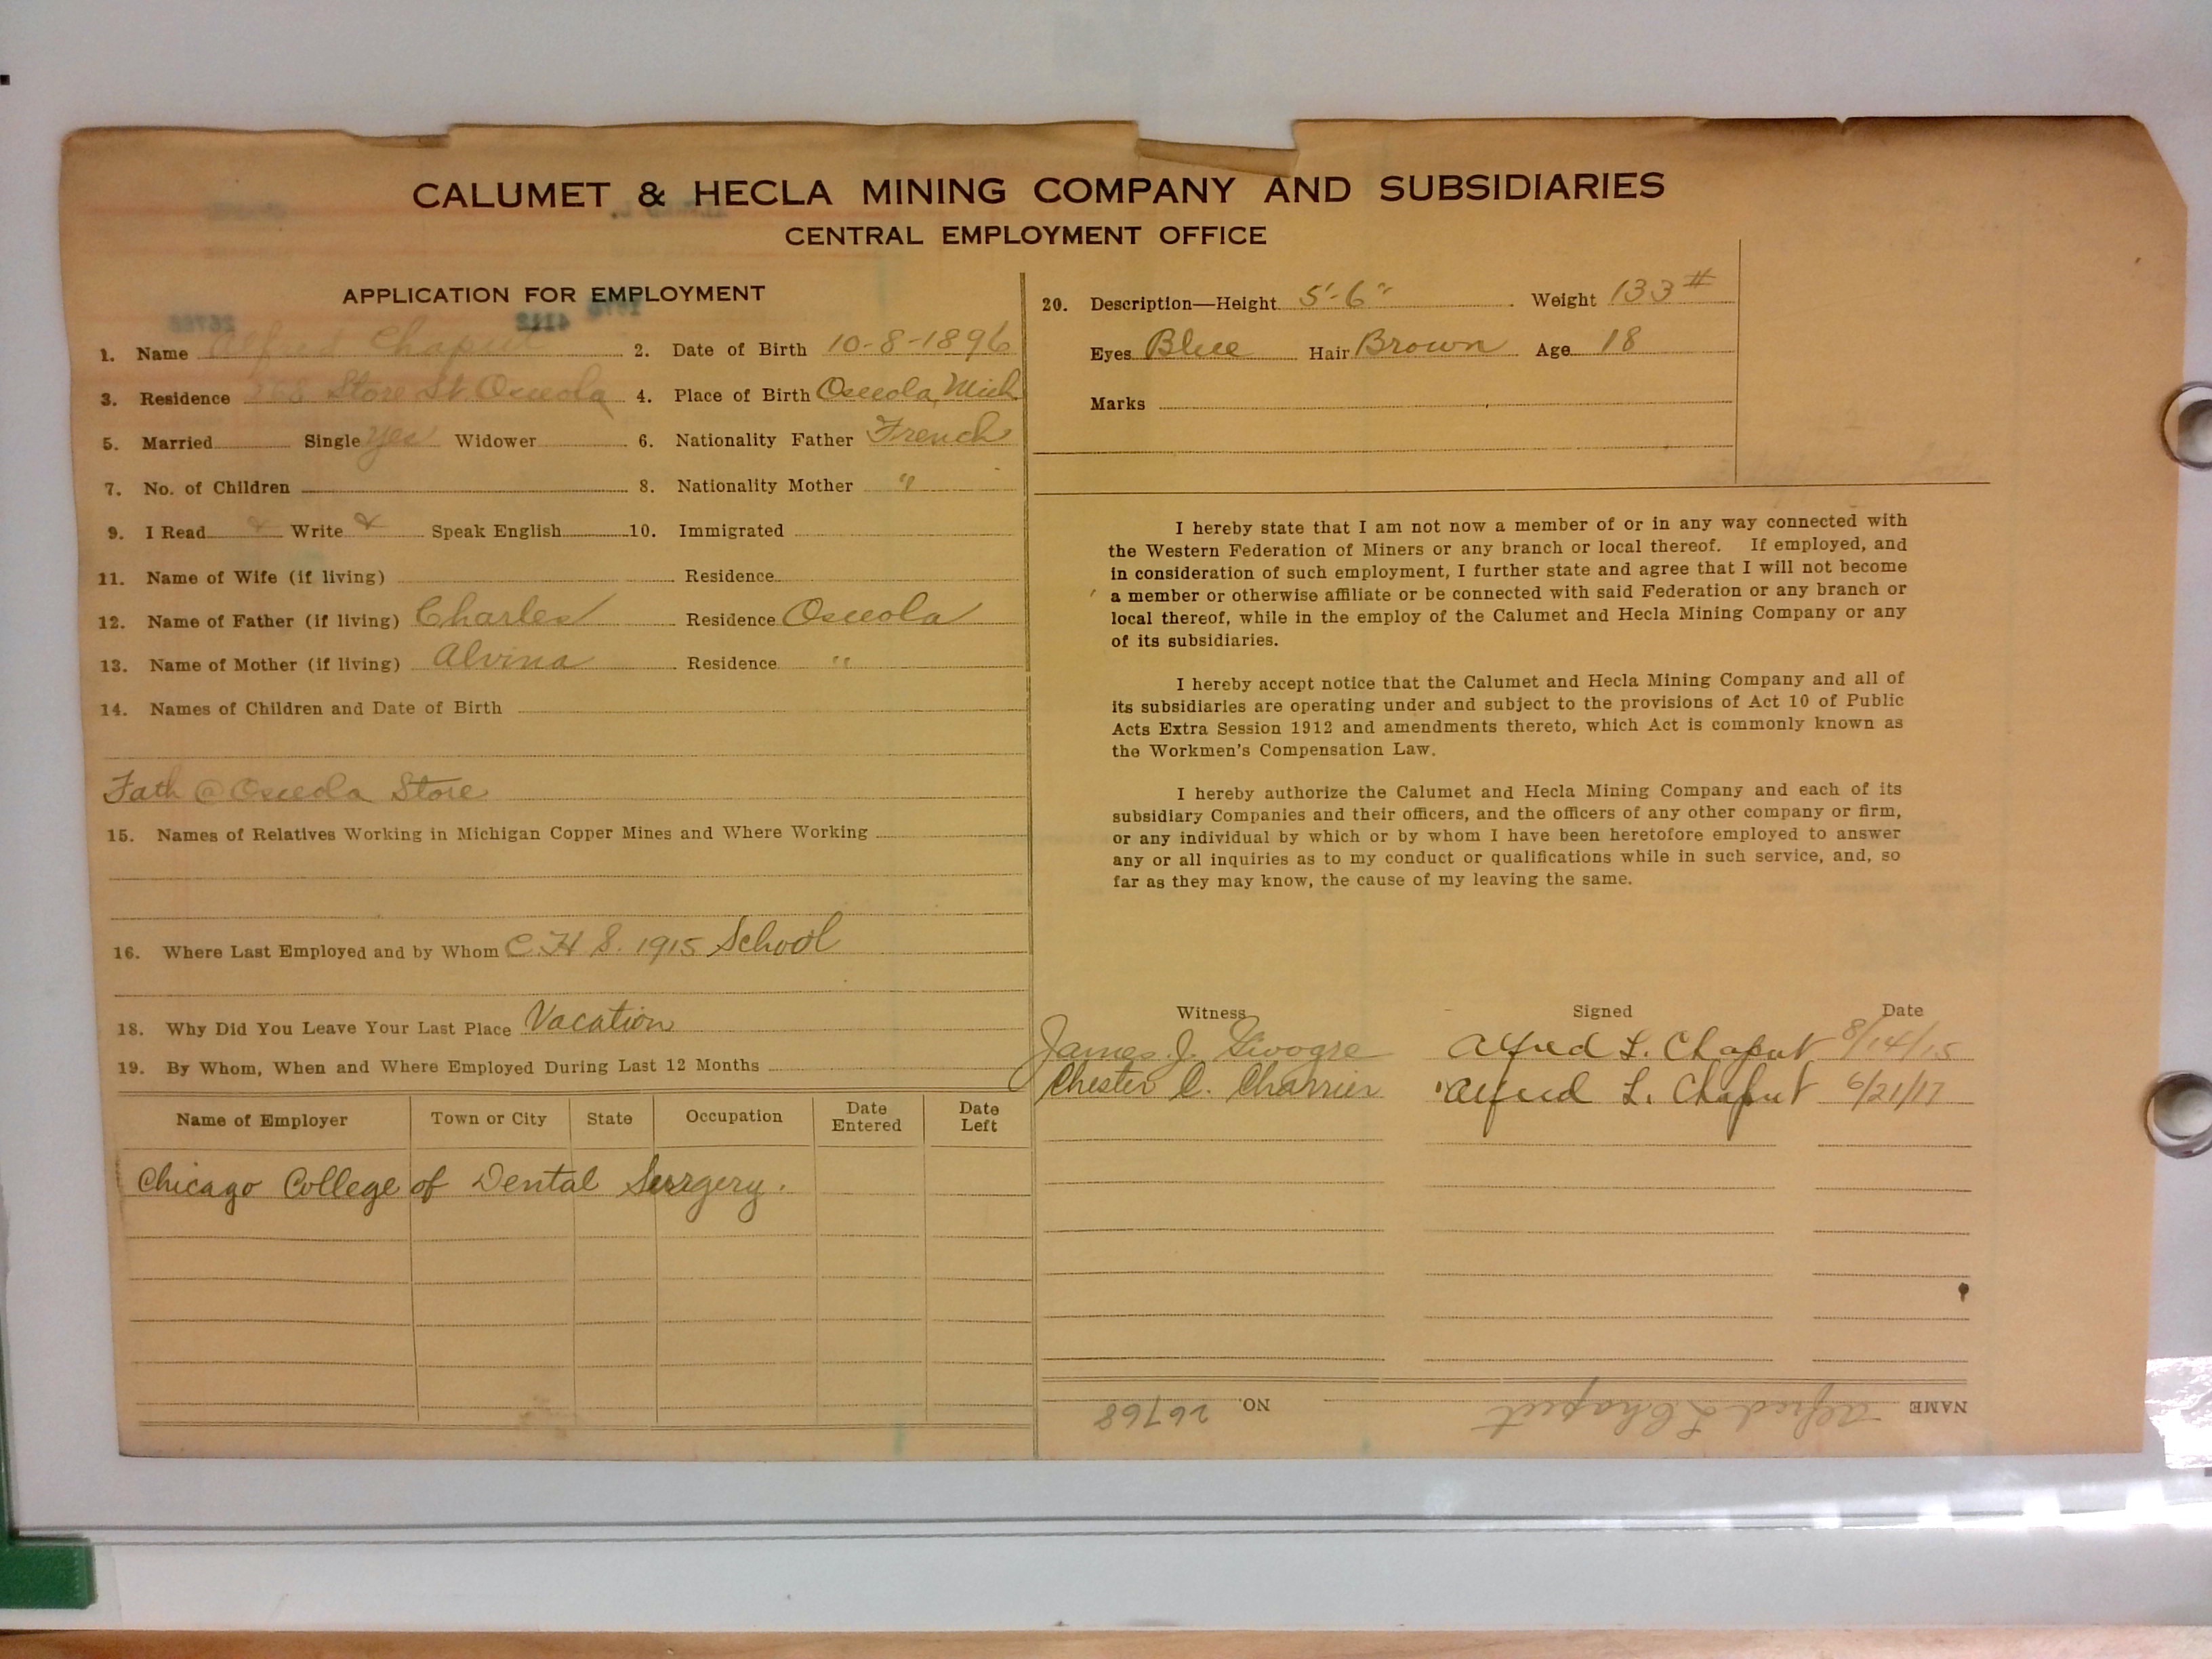 CALUMET & HECLA MINING COMPANY AND SUBSIDIARIES
CENTRAL EMPLOYMENT OFFICE
APPLICATION FOR EMPLOYMENT
1. Name Alfred Chaput 2. Date of Birth 10-8-1896
3. Residence Store St. Osceola 4. Place of Birth Osceola, Mich
5. Married Single Yes Widower 6. Nationality Father French
7. No. of Children 8. Nationality Mother "
9. I Read Write Speak English 10. Immigrated
11. Name of Wife (if living) Residence
12. Name of Father (if living) Charles Residence Osceola
13. Name of Mother (if living) Alvina Residence "
14. Names of Children and Date of Birth
Fath @ Osceola Store
15. Names of Relatives Working in Michigan Copper Mines and Where Working
16. Where Last Employed and by Whom C.H.S. 1915 School
18. Why Did You Leave Your Last Place Vacation
19. By Whom, When and Where Employed During Last 12 Months
Name of Employer Town or City State Occupation Date Entered Date Left
Chicago College of Dental Surgery.
20. Description—Height 5'-6" Weight 133#
Eyes Blue Hair Brown Age 18
Marks
I hereby state that I am not now a member of or in any way connected with
the Western Federation of Miners or any branch or local thereof. If employed, and
in consideration of such employment, I further state and agree that I will not become
a member or otherwise affiliate or be connected with said Federation or any branch or
local thereof, while in the employ of the Calumet and Hecla Mining Company or any
of its subsidiaries.
I hereby accept notice that the Calumet and Hecla Mining Company and all of
its subsidiaries are operating under and subject to the provisions of Act 10 of Public
Acts Extra Session 1912 and amendments thereto, which Act is commonly known as
the Workmen's Compensation Law.
I hereby authorize the Calumet and Hecla Mining Company and each of its
subsidiary Companies and their officers, and the officers of any other company or firm,
or any individual by which or by whom I have been heretofore employed to answer
any or all inquiries as to my conduct or qualifications while in such service, and, so
far as they may know, the cause of my leaving the same.
Witness Signed Date
James J. Alfred L. Chaput 8/14/15
Chester C. Charrier Alfred L. Chaput 6/21/17
NAME Alfred L Chaput NO. 26768